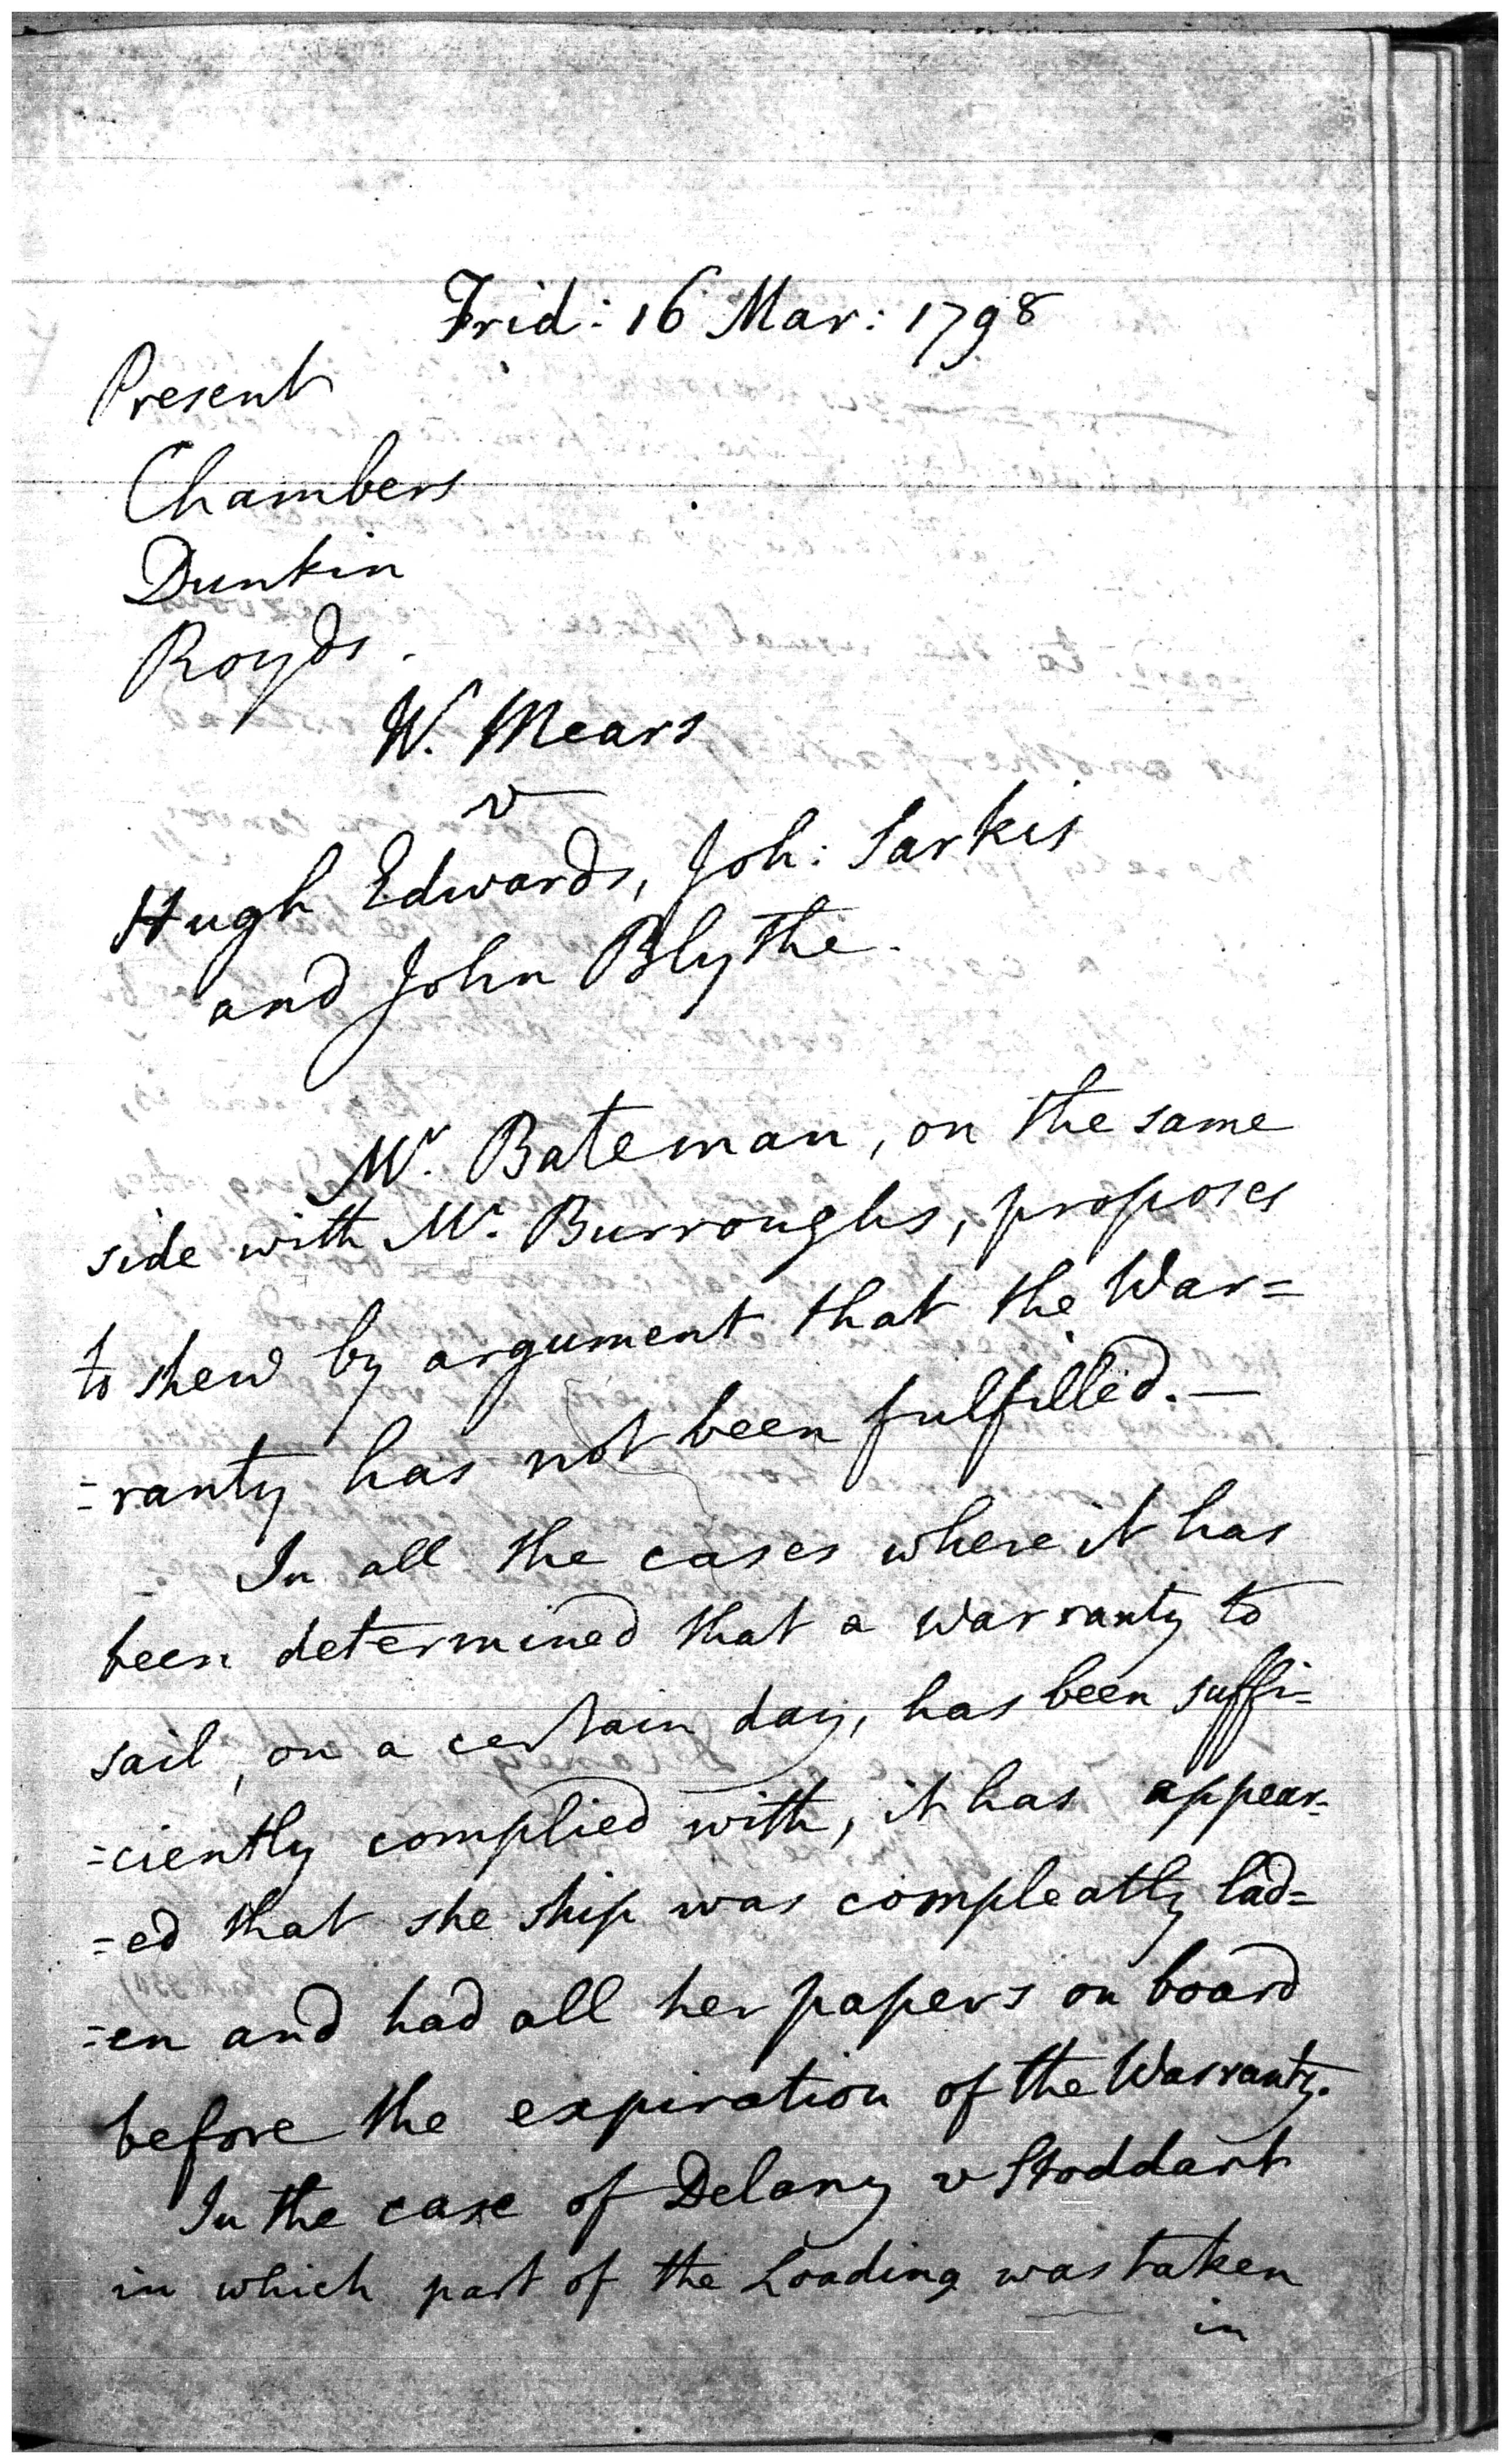 Frid: 16 Mar: 1798
Present
Chambers
Dunkin
Royds.
W. Mears
v
Hugh Edwards, Joh: Sarkis
and John Blythe.
Mr. Bateman, on the same
side with Mr. Burroughs, proposes
to shew by argument that the War=
=ranty has not been fulfilled.—
In all the cases where it has
been determined that a Warranty to
sail, on a certain day, has been suffi=
=ciently complied with, it has appear=
=ed that she ship was compleatly lad=
=en and had all her papers on board
before the expiration of the Warranty.
In the case of Delany v Stoddart
in which part of the Loading was taken
in